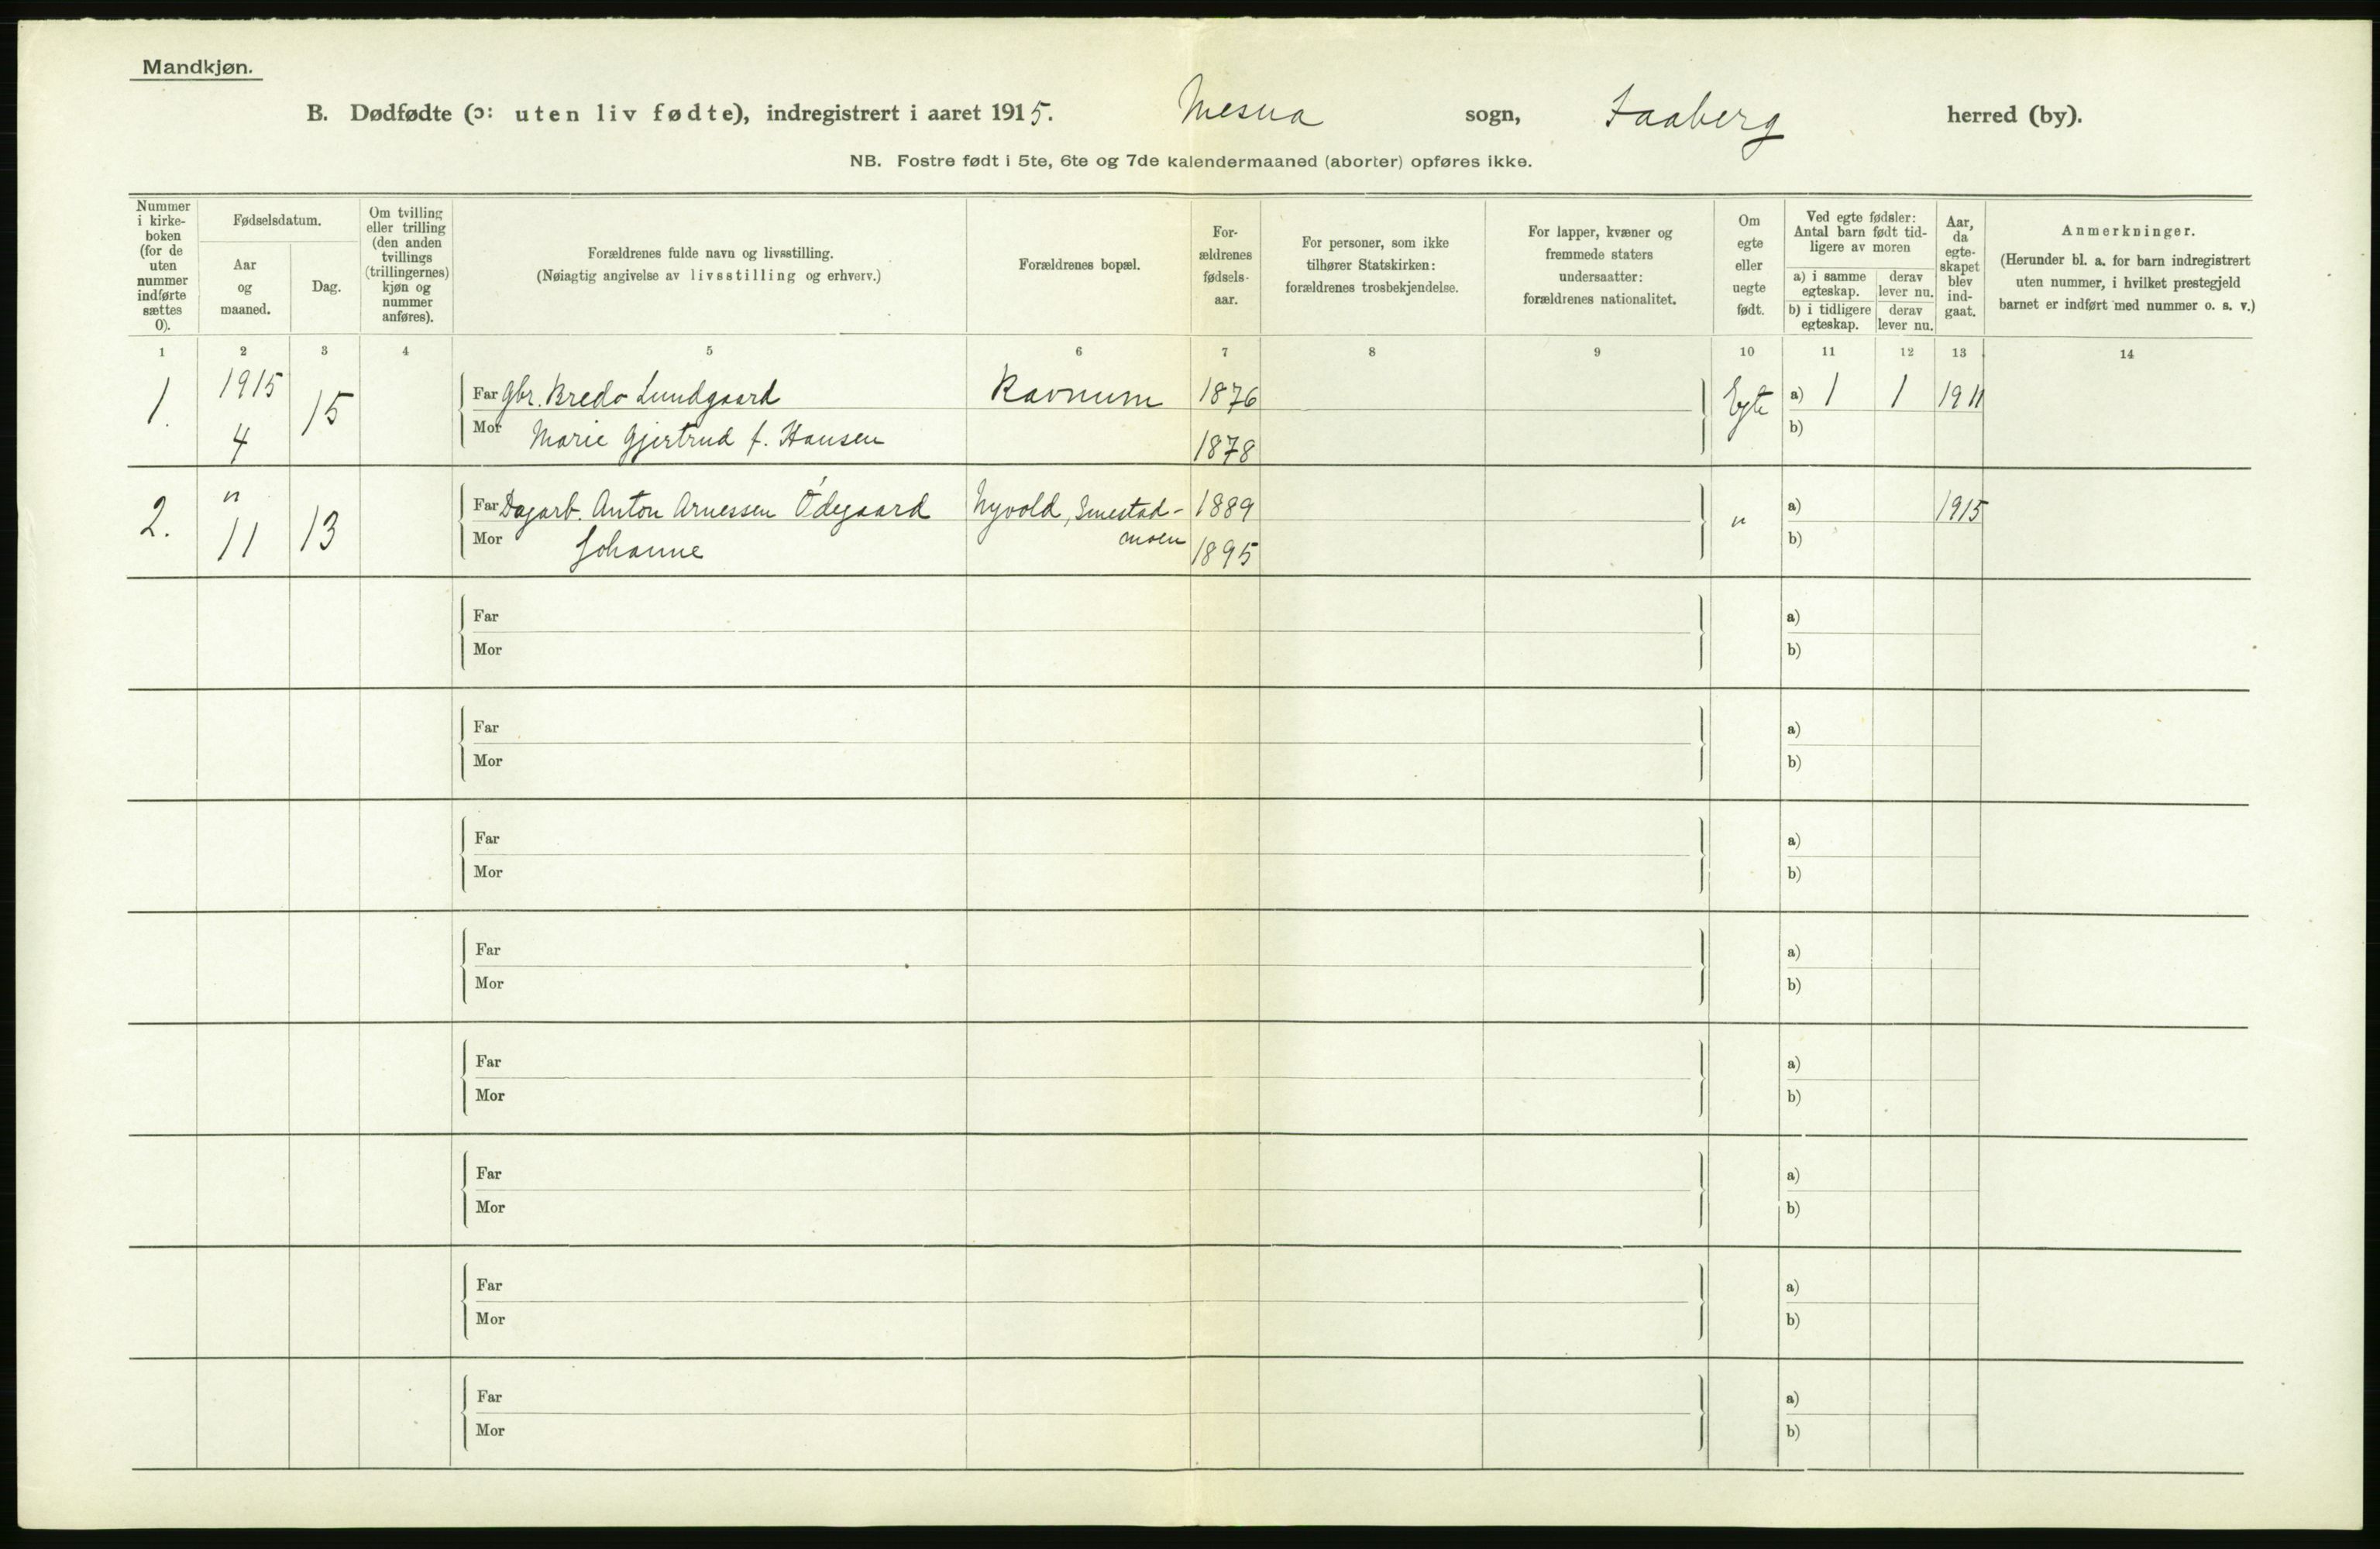 Mandkjøn.
B. Dødfødte (ɔ: uten liv fødte), indregistrert i aaret 1915. Mesna sogn, Faaberg herred (by).
NB. Fostre født i 5te, 6te og 7de kalendermaaned (aborter) opføres ikke.
Nummer
i kirke-
boken
(for de
uten
nummer
indførte
sættes
0).
Fødselsdatum.
Aar
og
maaned.
Dag.
Om tvilling
eller trilling
(den anden
tvillings
(trillingernes)
kjøn og
nummer
anføres).
Forældrenes fulde navn og livsstilling.
(Nøiagtig angivelse av livsstilling og erhverv.)
Forældrenes bopæl.
For-
ældrenes
fødsels-
aar.
For personer, som ikke
tilhører Statskirken:
forældrenes trosbekjendelse.
For lapper, kvæner og
fremmede staters
undersaatter:
forældrenes nationalitet.
Om
egte
eller
uegte
født.
Ved egte fødsler:
Antal barn født tid-
ligere av moren
a) i samme
egteskap.
derav
lever nu.
b) i tidligere
egteskap.
derav
lever nu.
Aar,
da
egte-
skapet
blev
ind-
gaat.
Anmerkninger.
(Herunder bl. a. for barn indregistrert
uten nummer, i hvilket prestegjeld
barnet er indført med nummer o. s. v.)
1 2 3 4 5 6 7 8 9 10 11 12 13 14
1. 1915 15 Far Gbr. Bredo Lundgaard Ravnum 1876 Egte a) 1 1 1911
4 Mor Marie Gjertrud f. Hansen 1878 b)
2. " 13 Far Dagarb. Anton Arnessen Ödegaard Nyvold, Smestad- 1889 " a) 1915
11 Mor Johanne moen 1895 b)
Far a)
Mor b)
Far a)
Mor b)
Far a)
Mor b)
Far a)
Mor b)
Far a)
Mor b)
Far a)
Mor b)
Far a)
Mor b)
Far a)
Mor b)